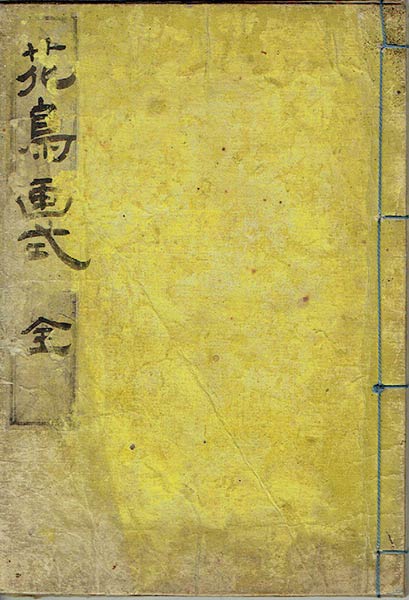 花鳥画式 全